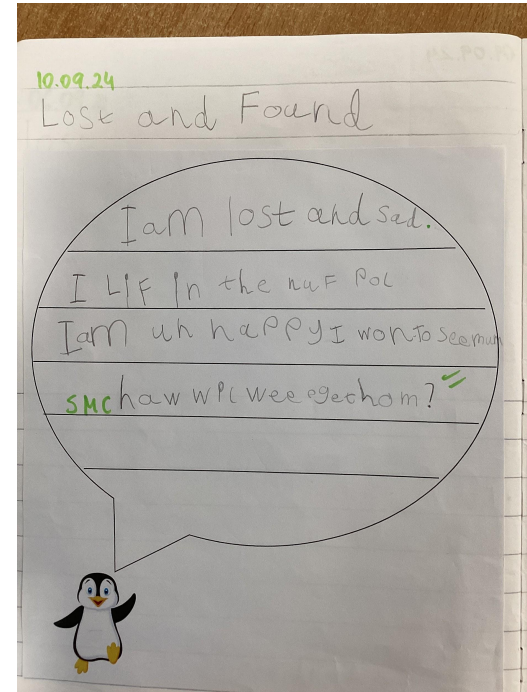 10.09.24
Lost and Found
I am lost and sad.
I Lif in the nuf Pol
I am un happy I won to see mum
SMC haw wil wee get hom?